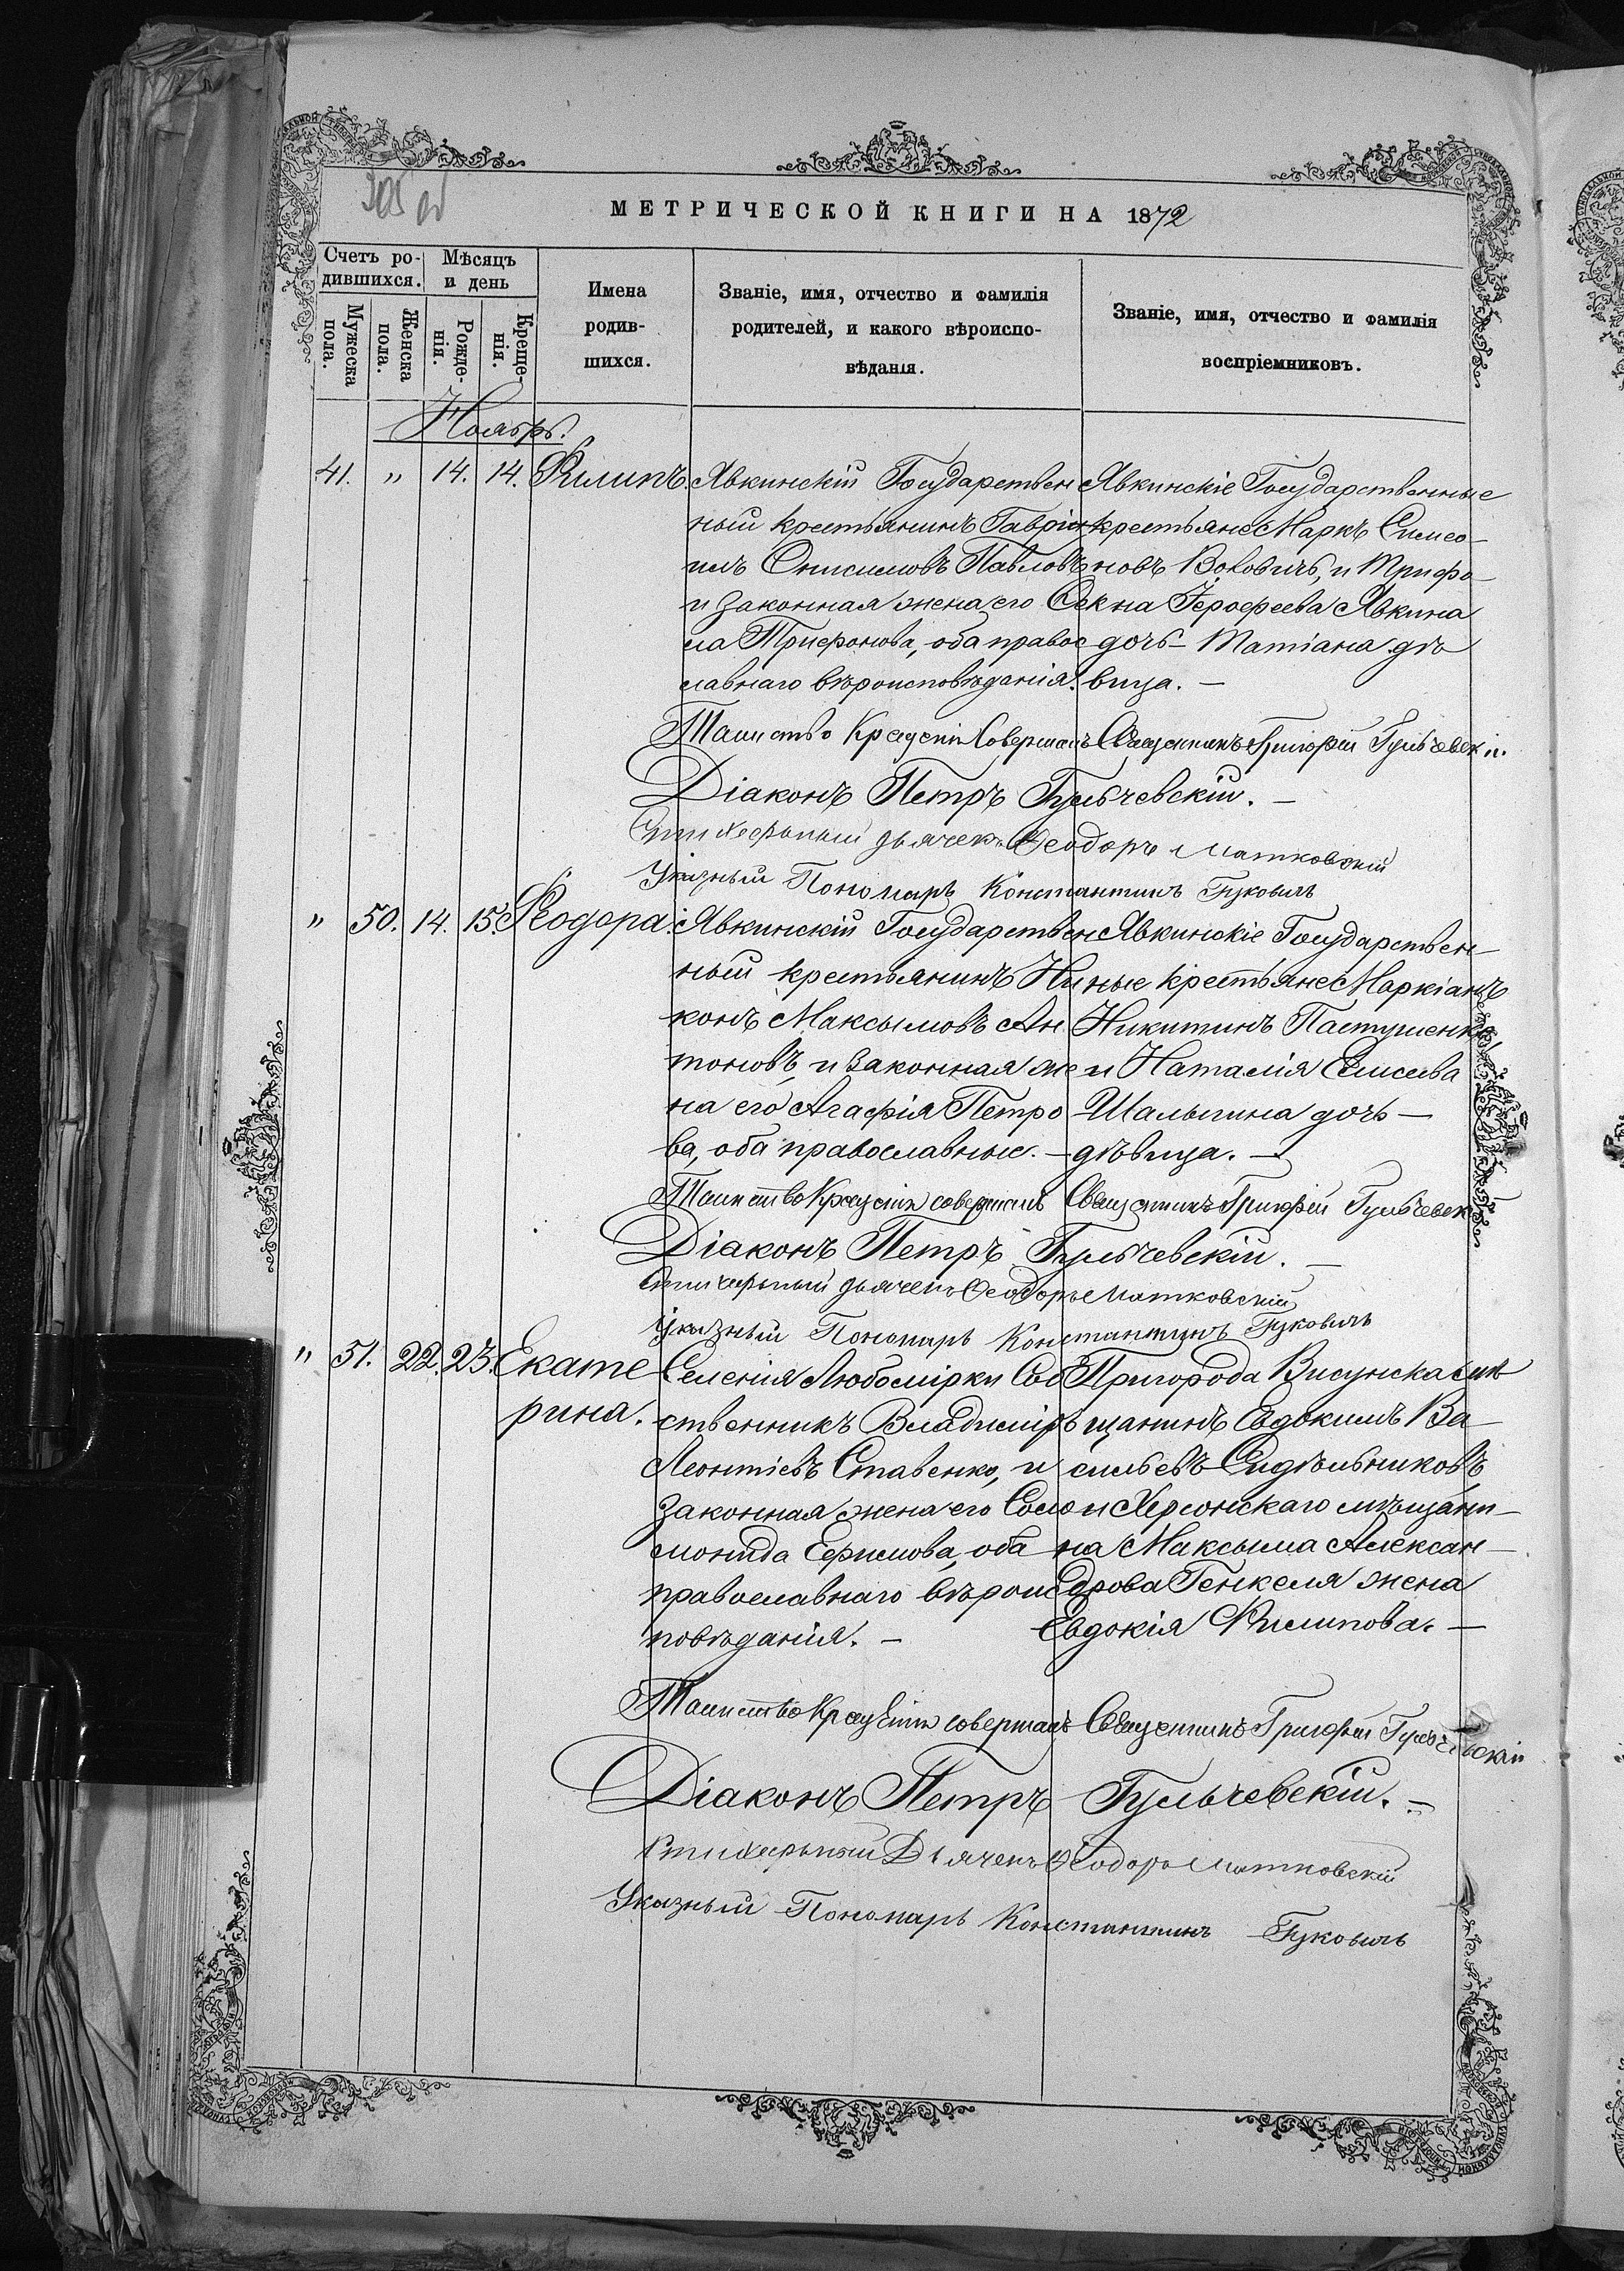 305 об
МЕТРИЧЕСКОЙ КНИГИ НА 1872
Счетъ ро-
дившихся.
Мѣсяцъ
и день
Мужеска
пола.
Женска
пола.
Рожде-
нія.
Креще-
нія.
Имена
родив-
шихся.
Званіе, имя, отчество и фамилія
родителей, и какого вѣроиспо-
вѣданія.
Званіе, имя, отчество и фамилія
воспріемниковъ.
Ноябрь.
41. „ 14. 14. Филипъ.
Явкинскій Государствен
ный крестьянинъ Гаврі
илъ Онисимовъ Павловъ
и законная жена его Фек
ла Трифонова, оба правос
лавнаго вѣроисповѣданія.
Явкинскіе Государственные
крестьяне Маркъ Симео-
новъ Вововичъ, и Трифо-
на Іерофеева Явкина
дочь - Татіана дѣ
вица. —
Таинство Крещенія совершалъ Священникъ Григорій Гульчевскій.
Діаконъ Петръ Гульчевскій. —
Стихарный дьячекъ Ѳеодоръ Матковскій
Указный Пономарь Константинъ Гуковичъ
„ 50. 14. 15. Феодора.
Явкинскій Государствен
ный крестьянинъ Ни
конъ Максымовъ Ан
тоновъ, и законная же
на его Агафія Петро
ва, оба православные. —
Явкинскіе Государствен-
ные крестьяне Маркіанъ
Никитинъ Пастушенко,
и Наталія Елисеева
Шалыгина дочь —
дѣвица. —
Таинство Крещенія совершалъ Священникъ Григорій Гульчевск
Діаконъ Петръ Гульчевскій. —
Стихарный дьячекъ Ѳеодоръ Матковскій
Указный Пономарь Константинъ Гуковичъ
„ 51. 22. 23. Екате
рина.
Селенія Любомірки Соб
ственникъ Владиміръ
Леонтіевъ Ставенко, и
законная жена его Соло
монида Ефимова, оба
православнаго вѣроис
повѣданія. —
Пригорода Висунска мѣ
щанинъ Евдокимъ Ва-
сильевъ Сидѣльниковъ
и Херсонскаго мѣщани-
на Максыма Алексан-
дрова Генкеля жена
Евдокія Филипова. —
Таинство Крещенія совершалъ Священникъ Григорій Гульчевскій
Діаконъ Петръ Гульчевскій. —
Стихарный Дьячекъ Ѳеодоръ Матковскій
Указный Пономарь Константинъ Гуковичъ